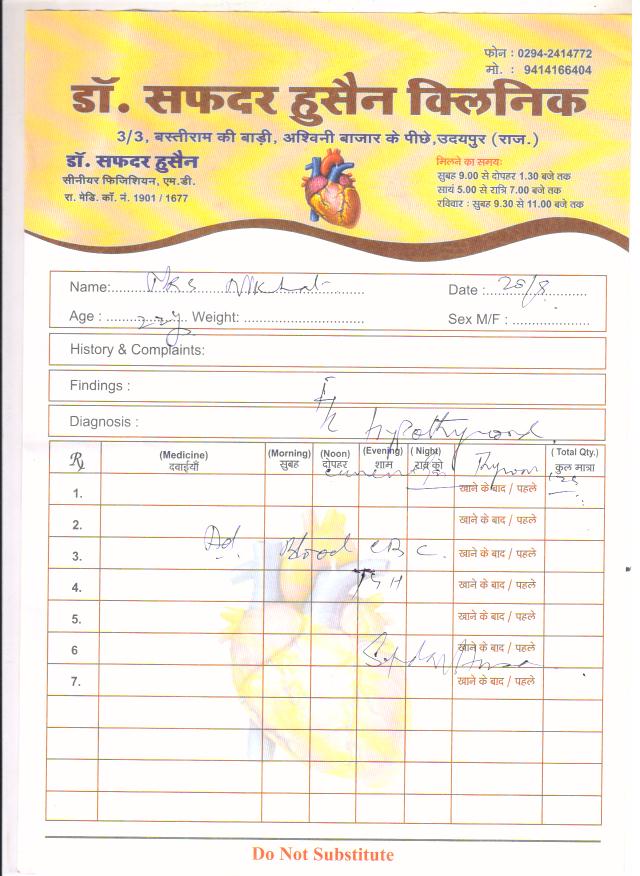 फोन : 0294-2414772
मो. : 9414166404
डॉ. सफदर हुसैन क्लिनिक
3/3, बस्तीराम की बाड़ी, अश्विनी बाजार के पीछे,उदयपुर (राज.)
डॉ. सफदर हुसैन
सीनीयर फिजिशियन, एम.डी.
रा. मेडि. कॉ. नं. 1901 / 1677
मिलने का समयः
सुबह 9.00 से दोपहर 1.30 बजे तक
सायं 5.00 से रात्रि 7.00 बजे तक
रविवार : सुबह 9.30 से 11.00 बजे तक
Name: Mrs
Date : 20/8
Age : 22y Weight:
Sex M/F :
History & Complaints:
Findings :
Diagnosis : hypothyroid
Rx (Medicine) (Morning) (Noon) (Evening) (Night) (Total Qty.)
दवाईयाँ सुबह दोपहर शाम रात्रि को कुल मात्रा
1. खाने के बाद / पहले
2. खाने के बाद / पहले
3. Ad. Blood CBC. खाने के बाद / पहले
4. TSH खाने के बाद / पहले
5. खाने के बाद / पहले
6 खाने के बाद / पहले
7. खाने के बाद / पहले
Do Not Substitute